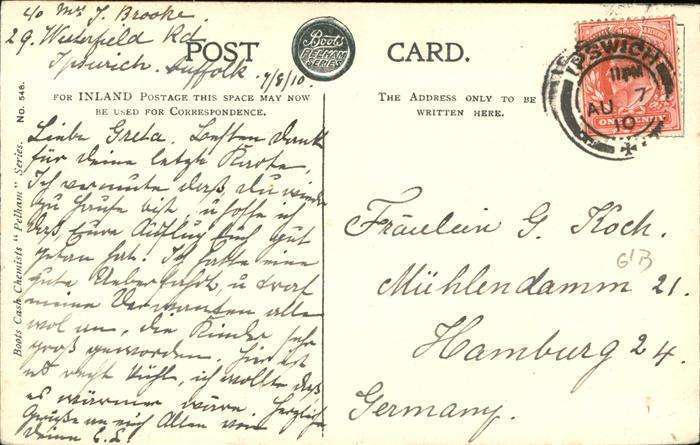 c/o Mrs J. Brooke
29. Westerfield Rd.
Ipswich. Suffolk. 7/8/10.
POST CARD.
Boots
PELHAM
SERIES
FOR INLAND POSTAGE THIS SPACE MAY NOW
BE USED FOR CORRESPONDENCE.
THE ADDRESS ONLY TO BE
WRITTEN HERE.
Boots Cash Chemists "Pelham" Series. No. 546.
Liebe Greta. Besten Dank
für deine letzte Karte,
Ich vermute daß du wieder
zu Hause bist, u hoffe ich
daß Eure Ausflug Euch gut
getan hat. Ich hatte eine
gute Ueberfahrt, u traf
meine Verwandten alle
wol an, die Kinder sehr
groß geworden. Hier ist
es recht kühl, ich wollte daß
es wärmer wäre. Herzliche
Grüße an euch Allen von
deine E.L.
Fräulein G. Koch.
Mühlendamm 21.
Hamburg 24.
Germany.
GB
IPSWICH
11 PM
AU 7
10
ONE PENNY